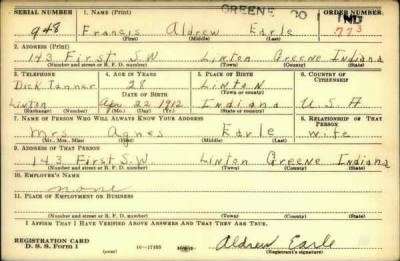 SERIAL NUMBER 1. NAME (Print) GREENE CO IND ORDER NUMBER
948 Francis Aldrew Earle 773
(First) (Middle) (Last)
2. ADDRESS (Print)
143 First S.W Linton Greene Indiana
(Number and street or R. F. D. number) (Town) (County) (State)
3. TELEPHONE 4. AGE IN YEARS 5. PLACE OF BIRTH 6. COUNTRY OF CITIZENSHIP
Dick Tanner 28 Linton
DATE OF BIRTH (Town or county)
Linton Apr 22 1912 Indiana U.S.A
(Exchange) (Number) (Mo.) (Day) (Yr.) (State or country)
7. NAME OF PERSON WHO WILL ALWAYS KNOW YOUR ADDRESS 8. RELATIONSHIP OF THAT PERSON
Mrs Agnes Earle wife
(Mr., Mrs., Miss) (First) (Middle) (Last)
9. ADDRESS OF THAT PERSON
143 First S.W Linton Greene Indiana
(Number and street or R. F. D. number) (Town) (County) (State)
10. EMPLOYER'S NAME
none
11. PLACE OF EMPLOYMENT OR BUSINESS
(Number and street or R. F. D. number) (Town) (County) (State)
I AFFIRM THAT I HAVE VERIFIED ABOVE ANSWERS AND THAT THEY ARE TRUE.
REGISTRATION CARD
D. S. S. Form 1 16—17105 Aldrew Earle
(Registrant's signature)